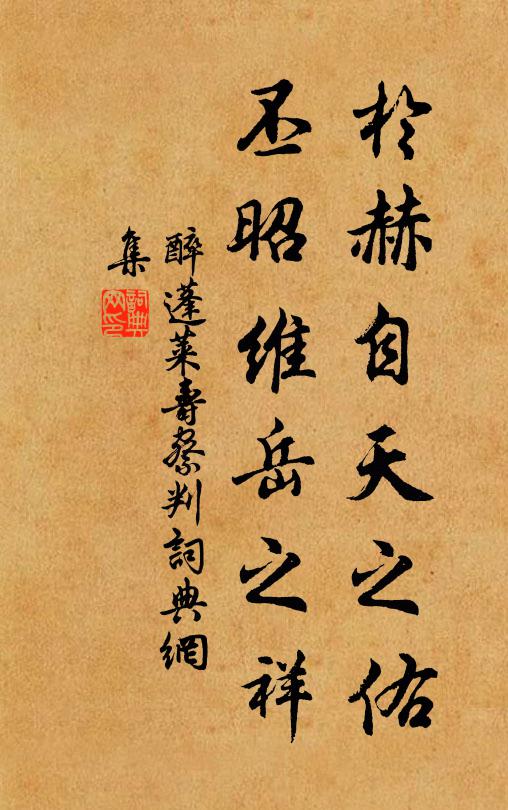 於赫自天之佑
丕昭維岳之祥
醉蓬萊壽蔡判詞典網
集
詞典
网印